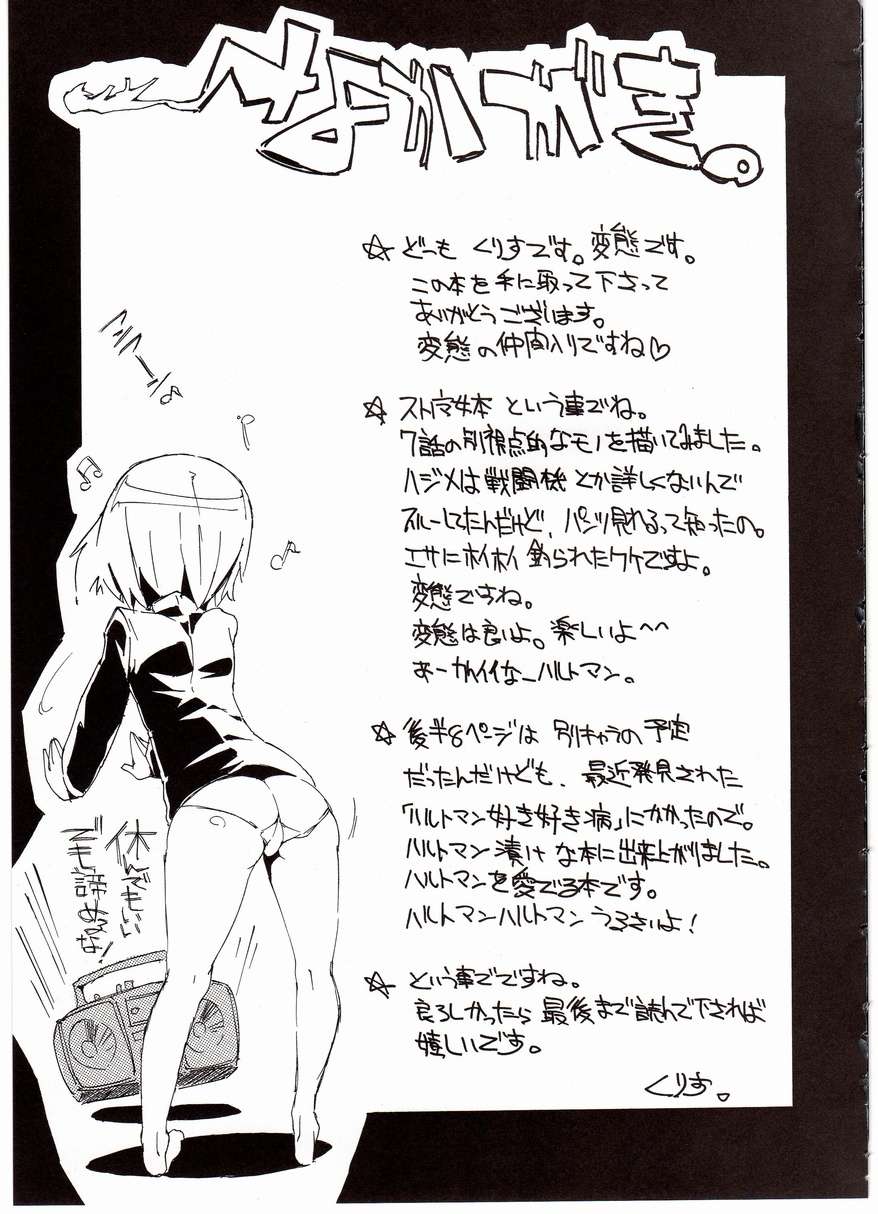 なかがき。
☆ どーも くりすです。変態です。
この本を手に取って下さって
ありがとうございます。
変態の仲間入りですね♡
☆ ストパン本 という事でね。
7話の別視点的なモノを描いてみました。
ハジメは戦闘機とか詳しくないんで
スルーしてたんだけど、パンツ見れるって知ったの。
エサにホイホイ釣られたワケですよ。
変態ですね。
変態は良いよ。楽しいよ〜〜
あーかわイイなーハルトマン。
☆ 後半8ページは 別キャラの予定
だったんだけども、最近発見された
「ハルトマン好き好き病」にかかったので。
ハルトマン漬けな本に出来上がりました。
ハルトマンを愛でる本です。
ハルトマンハルトマンうるさいよ!
☆ という事でですね。
良ろしかったら最後まで読んで下されば
嬉しいです。
くりす。
休んでもいい
でも諦めるな!